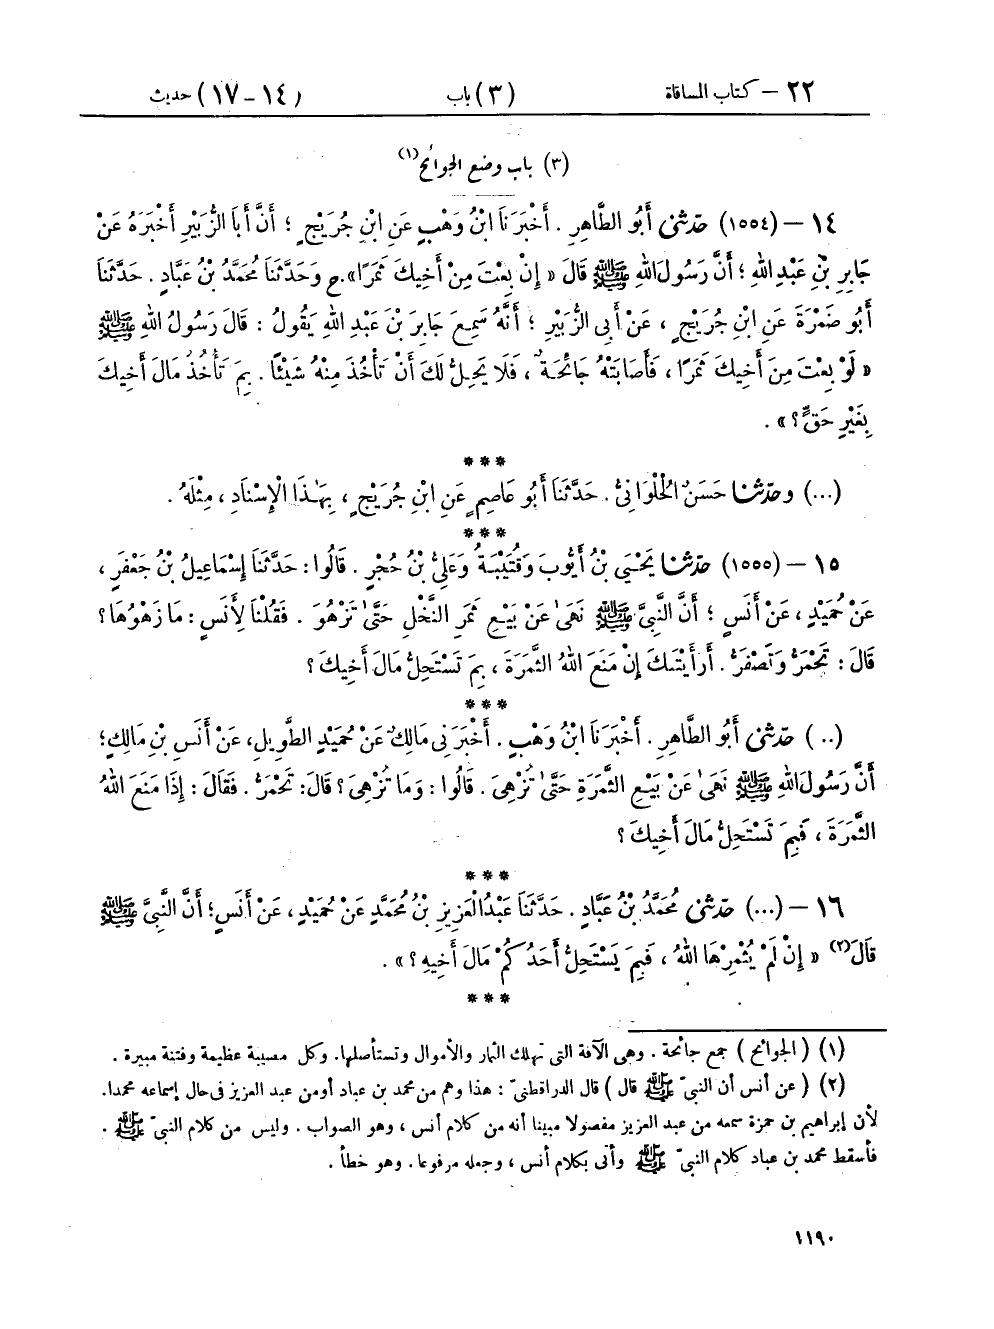 ٢٢ – كتاب المساقاة (٣) باب (١٤ - ١٧) حديث
(٣) باب وضع الجوائح (١)
١٤ – (١٥٥٤) حَدَّثَنِى أَبُو الطَّاهِرِ . أَخْبَرَنَا ابْنُ وَهْبٍ عَنِ ابْنِ جُرَيْجٍ ؛ أَنَّ أَبَا الزُّبَيْرِ أَخْبَرَهُ عَنْ
جَابِرِ بْنِ عَبْدِ اللهِ ؛ أَنَّ رَسُولَ اللهِ ﷺ قَالَ « إِنْ بِعْتَ مِنْ أَخِيكَ ثَمَرًا ». ح وَحَدَّثَنَا مُحَمَّدُ بْنُ عَبَّادٍ . حَدَّثَنَا
أَبُو ضَمْرَةَ عَنِ ابْنِ جُرَيْجٍ ، عَنْ أَبِى الزُّبَيْرِ ؛ أَنَّهُ سَمِعَ جَابِرَ بْنَ عَبْدِ اللهِ يَقُولُ : قَالَ رَسُولُ اللهِ ﷺ
« لَوْ بِعْتَ مِنْ أَخِيكَ ثَمَرًا ، فَأَصَابَتْهُ جَائِحَةٌ ، فَلَا يَحِلُّ لَكَ أَنْ تَأْخُذَ مِنْهُ شَيْئًا . بِمَ تَأْخُذُ مَالَ أَخِيكَ
بِغَيْرِ حَقٍّ ؟ » .
***
(...) وحَدَّثَنَا حَسَنٌ الْحُلْوَانِىُّ . حَدَّثَنَا أَبُو عَاصِمٍ عَنِ ابْنِ جُرَيْجٍ ، بِهَـٰذَا الْإِسْنَادِ ، مِثْلَهُ .
***
١٥ – (١٥٥٥) حَدَّثَنَا يَحْيَىٰ بْنُ أَيُّوبَ وَقُتَيْبَةُ وَعَلِىُّ بْنُ حُجْرٍ . قَالُوا : حَدَّثَنَا إِسْمَاعِيلُ بْنُ جَعْفَرٍ ،
عَنْ حُمَيْدٍ ، عَنْ أَنَسٍ ؛ أَنَّ النَّبِىَّ ﷺ نَهَىٰ عَنْ بَيْعِ ثَمَرِ النَّخْلِ حَتَّىٰ تَزْهُوَ . فَقُلْنَا لِأَنَسٍ : مَا زَهْوُهَا ؟
قَالَ : تَحْمَرُّ وَتَصْفَرُّ . أَرَأَيْتَكَ إِنْ مَنَعَ اللهُ الثَّمَرَةَ ، بِمَ تَسْتَحِلُّ مَالَ أَخِيكَ ؟
***
(..) حَدَّثَنِى أَبُو الطَّاهِرِ . أَخْبَرَنَا ابْنُ وَهْبٍ . أَخْبَرَنِى مَالِكٌ عَنْ حُمَيْدٍ الطَّوِيلِ ، عَنْ أَنَسِ بْنِ مَالِكٍ ؛
أَنَّ رَسُولَ اللهِ ﷺ نَهَىٰ عَنْ بَيْعِ الثَّمَرَةِ حَتَّىٰ تُزْهِىَ . قَالُوا : وَمَا تُزْهِىَ ؟ قَالَ : تَحْمَرُّ . فَقَالَ : إِذَا مَنَعَ اللهُ
الثَّمَرَةَ ، فَبِمَ تَسْتَحِلُّ مَالَ أَخِيكَ ؟
***
١٦ – (...) حَدَّثَنِى مُحَمَّدُ بْنُ عَبَّادٍ . حَدَّثَنَا عَبْدُ الْعَزِيزِ بْنُ مُحَمَّدٍ عَنْ حُمَيْدٍ ، عَنْ أَنَسٍ ؛ أَنَّ النَّبِىَّ ﷺ
قَالَ (٢) « إِنْ لَمْ يُثْمِرْهَا اللهُ ، فَبِمَ يَسْتَحِلُّ أَحَدُكُمْ مَالَ أَخِيهِ ؟ » .
***
(١) ( الجوائح ) جمع جائحة . وهى الآفة التى تهلك الثمار والأموال وتستأصلها. وكل مصيبة عظيمة وفتنة مبيرة .
(٢) ( عن أنس أن النبىّ ﷺ قال ) قال الدارقطنىّ : هذا وهم من محمد بن عباد أو من عبد العزيز فى حال إسماعه محمدا.
لأن إبراهيم بن حمزة سمعه من عبد العزيز مفصولا مبينا أنه من كلام أنس ، وهو الصواب . وليس من كلام النبىّ ﷺ .
فأسقط محمد بن عباد كلام النبىّ ﷺ وأتى بكلام أنس ، وجعله مرفوعا . وهو خطأ .
١١٩٠